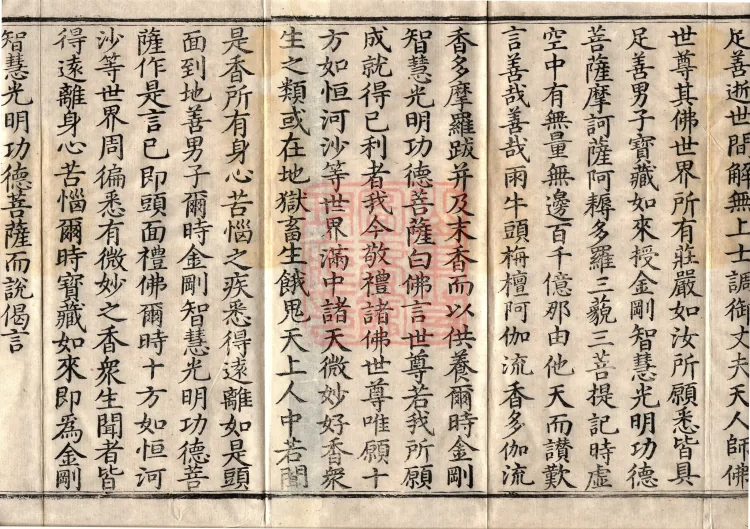 足善逝世間解無上士調御丈夫天人師佛
世尊其佛世界所有莊嚴如汝所願悉皆具
足善男子寶藏如來授金剛智慧光明功德
菩薩摩訶薩阿耨多羅三藐三菩提記時虛
空中有無量無邊百千億那由他天而讃歎
言善哉善哉雨牛頭栴檀阿伽流香多伽流
香多摩羅跋并及末香而以供養爾時金剛
智慧光明功德菩薩白佛言世尊若我所願
成就得已利者我今敬禮諸佛世尊唯願十
方如恒河沙等世界滿中諸天微妙好香衆
生之類或在地獄畜生餓鬼天上人中若聞
是香所有身心苦惱之疾悉得遠離如是頭
面到地善男子爾時金剛智慧光明功德菩
薩作是言已即頭面禮佛爾時十方如恒河
沙等世界周徧悉有微妙之香衆生聞者皆
得遠離身心苦惱爾時寶藏如來即爲金剛
智慧光明功德菩薩而說偈言